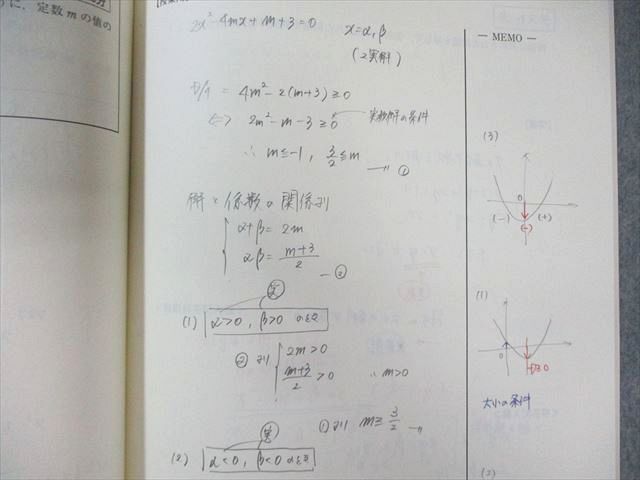 に, 定数 m の値の
2x² - 4mx + m + 3 = 0
x = α, β
(2実解)
D/4 = 4m² - 2(m+3) ≧ 0
⇔ 2m² - m - 3 ≧ 0 実数解の条件
∴ m ≦ -1, 3/2 ≦ m ―〃 ①
解と係数の関係より
α+β = 2m
αβ = (m+3)/2 ―②
(1) α>0, β>0
② より 2m > 0
(m+3)/2 > 0 ∴ m>0
① より m ≧ 3/2 ―〃
(2) α<0, β<0
― MEMO ―
(3)
0
(-) (+)
(-)
(1)
0
D≧0
大小の条件
(2)